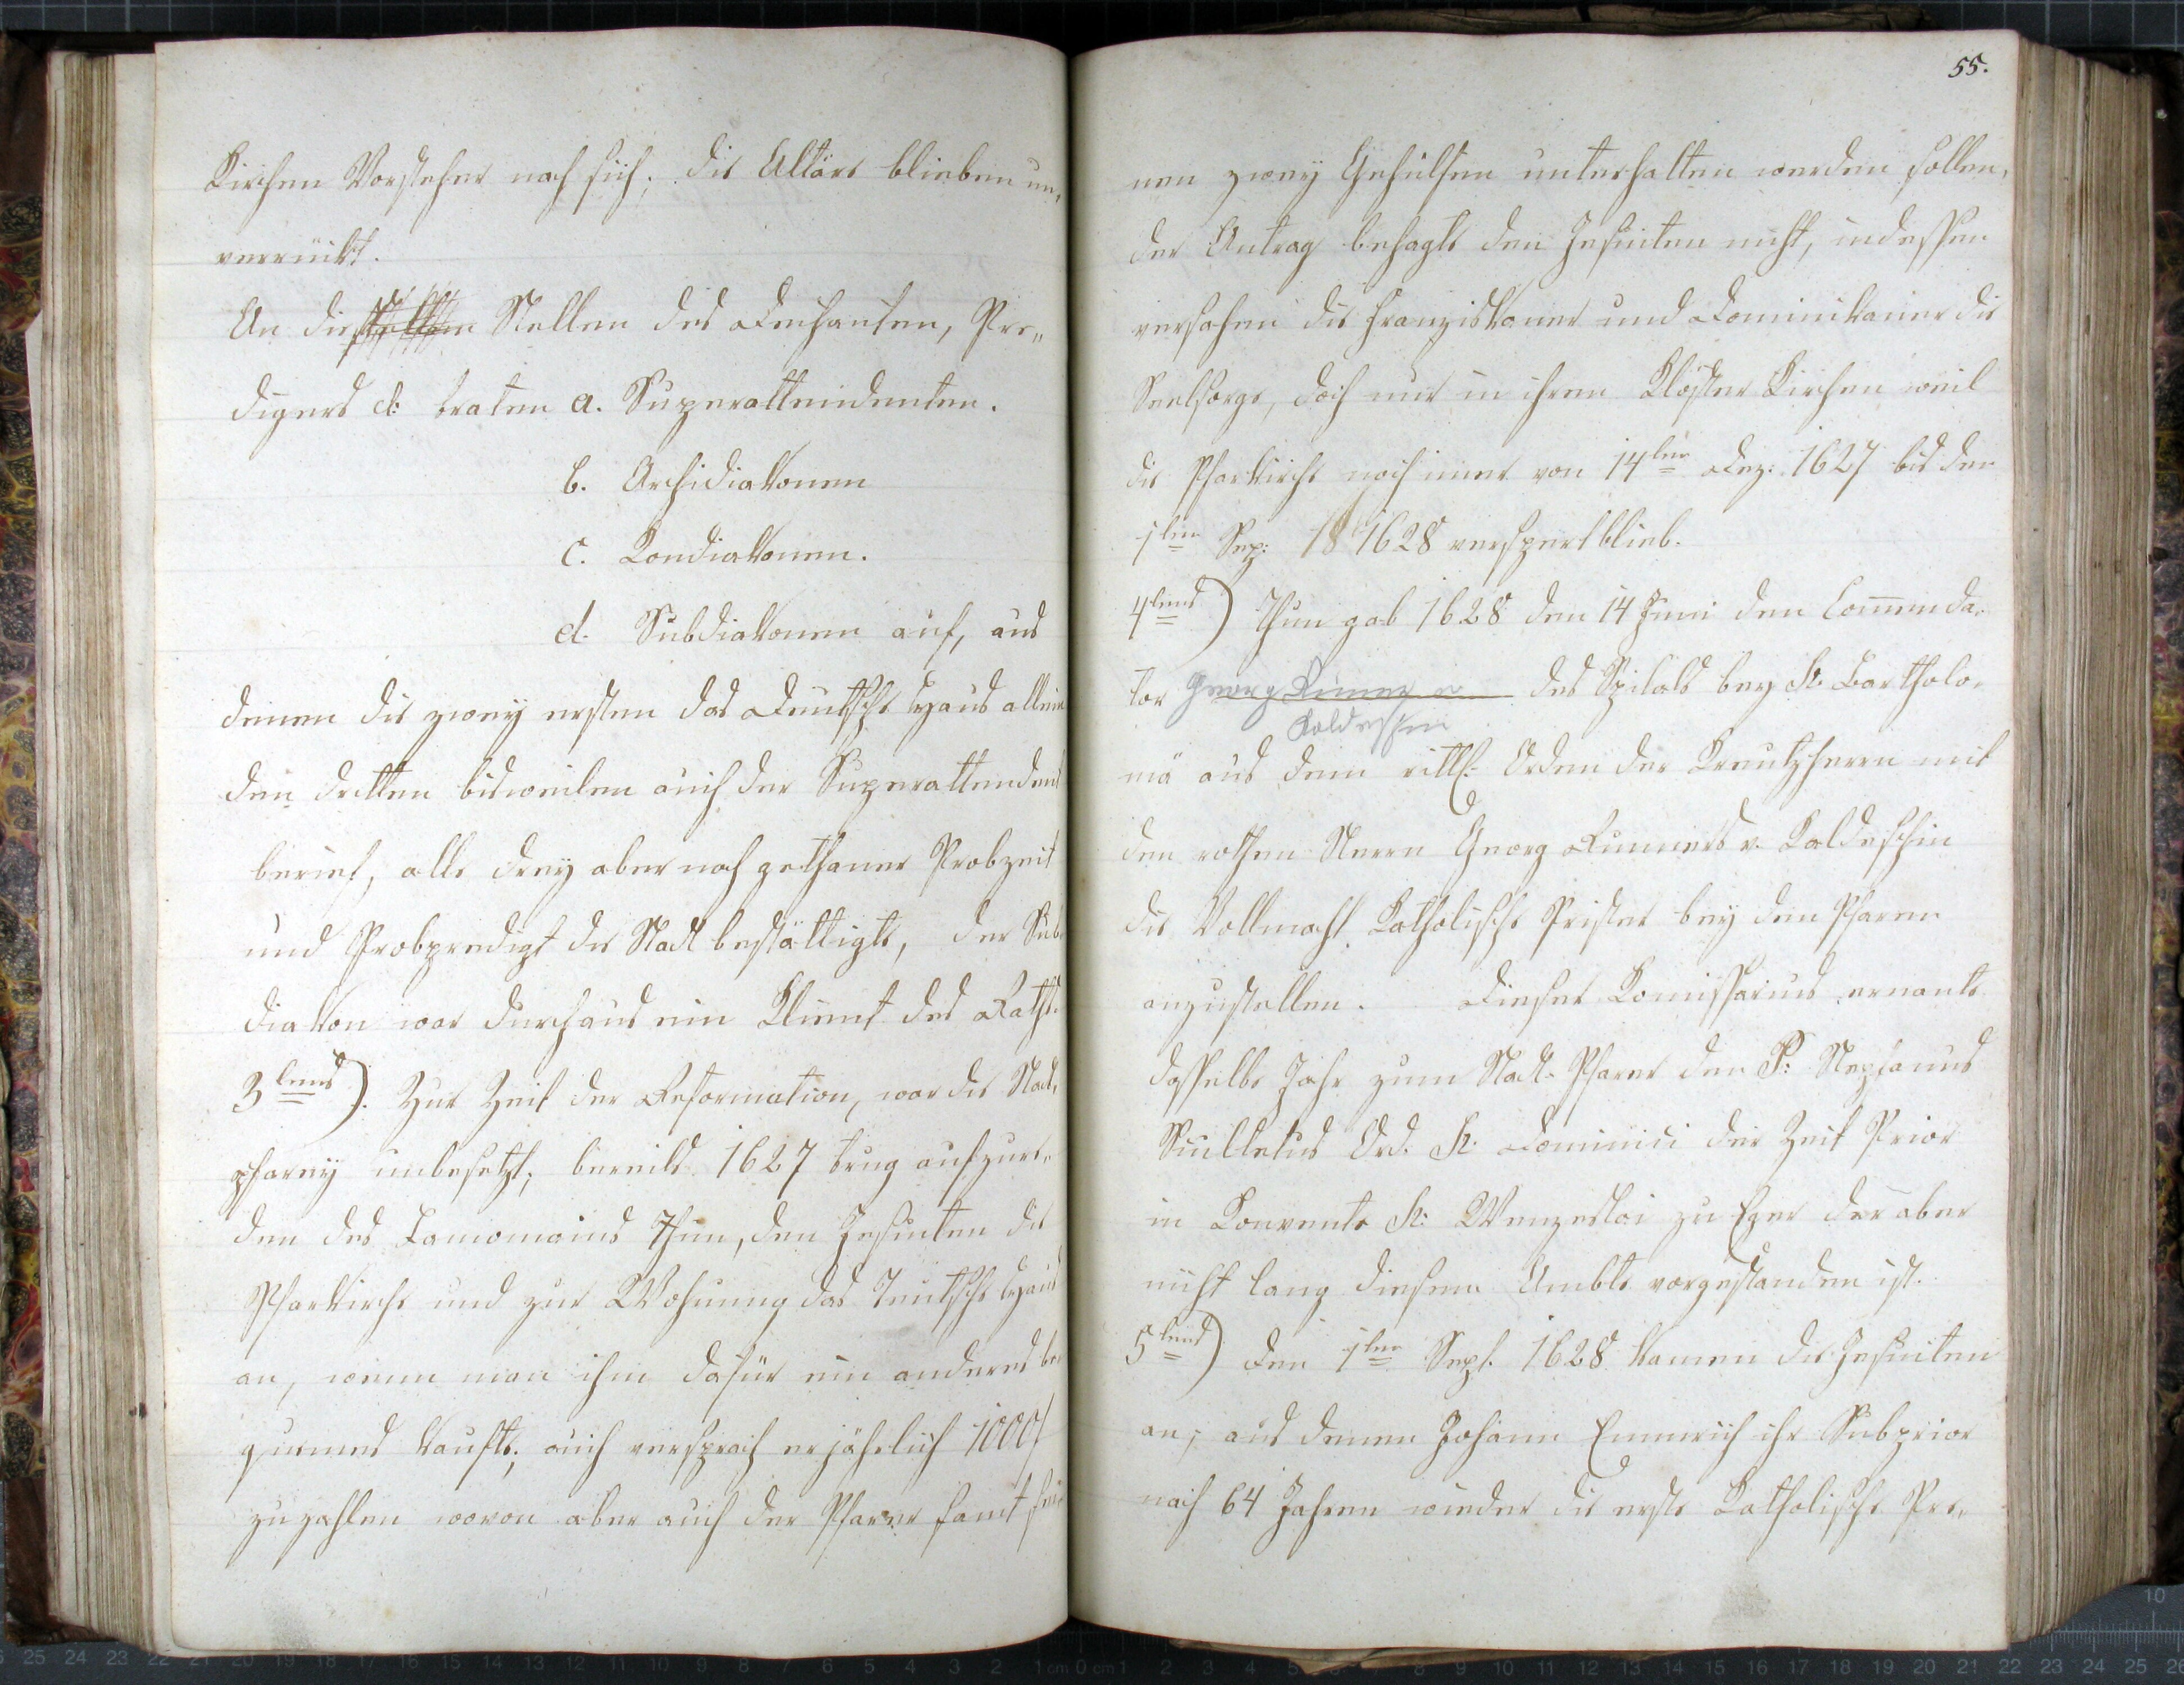 Kirchen Vorsteher nach sich; die Altäre blieben un„
verrückt.
An die Stellen des Dechanten, Pre„
digers d: traten a. Superattendenten.
b. Archidiakonen
c. Kondiakonen.
d. Subdiakonen auf, aus
denen die zwey ersten das Deutsche Haus allein
den dritten bisweilen auch der Superattendent
berief, alle drey aber nach gethaner Probzeit
und Probpredigt die Stadt bestättigte, der Sub„
diakon war durchaus ein Klient des Raths.
3tens). Zur Zeit der Reformation, war die Stadt„
pfarrey unbesetzt; bereits 1627 trug auf zure„
den des Lamomains Thun, den Jesuiten die
Pfarkirche und zur Wohnung das Teutsche Haus
an, wenn man ihm dafür ein anderes be
quemes kaufte; auch versprach er jährlich 1000f
zu zahlen wovon aber auch der Pfarrer samt sei
55.
nen zwey Gehülfen unterhalten werden sollen,
der Antrag behagte den Jesuiten nicht, indessen
versahen die Franziskaner und Dominikaner die
Seelsorge, doch nur in ihren Klöster Kirchen weil
die Pfarkirche noch imer von 14ten Dez: 1627 bis den
1ten Sep: 18 1628 verspert blieb.
4tens) Thun gab 1628 den 14 Juni dem Com̅enda„
tor Georg des Spitals bey St. Bartholo„
Koldeschin
mä aus dem rittl: Orden der Kreutzherrn mit
den rothen Stern Georg Runners v. Koldeschin
die Vollmacht Katholische Prister bey den Pfaren
anzustellen. Dieser Komissarius ernante
dasselbe Jahr zum Stadt-Pfarer den P: Stephanus
Scultetus Ord. St. Dominici der Zeit Prior
in Convente St: Wenzeslai zu Eger der aber
nicht lang diesem Ambte vorgestanden ist.
5tens) Den 1ten Sept. 1628 kamen die Jesuiten
an; aus denen Johann Emmerich ihr Subprior
nach 64 Jahren wieder die erste Katholische Pre„